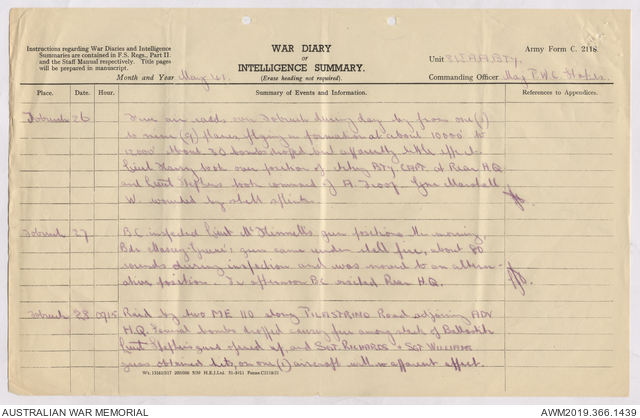 Instructions regarding War Diaries and Intelligence
Summaries are contained in F.S. Regs., Part II.
and the Staff Manual respectively. Title pages
will be prepared in manuscript.
WAR DIARY
OR
INTELLIGENCE SUMMARY.
(Erase heading not required).
Army Form C. 2118.
Unit
Month and Year May 41.
Commanding Officer Maj P.W.C.
Place. Date. Hour. Summary of Events and Information. References to Appendices.
Tobruch 26 air raids over Tobruch during day by from one (1)
to nine (9) planes flying in formation at about 10000' to
12,000' about 30 bombs dropped but apparently little effect.
Lieut took over position of BTY CAPT. at Rear H.Q
and Lieut took command of A Troop. Gnr Marshall
W. wounded by shell splinter.
Tobruch 27 B.C. inspected Lieut gun positions this morning,
Bdr gun came under shell fire, about 80
rounds during inspection and was moved to an altern-
ative position. In afternoon B.C. visited Rear H.Q.
Tobruch 28 0915 Raid by two ME 110 along PILASTRINO Road adjoining ADV
H.Q. Several bombs dropped causing fire among stack of
Lieut guns opened up, and SGT. RICHARDS & SGT. WILLIAMS
guns obtained hits, on one (1) aircraft with no apparent effect.
AUSTRALIAN WAR MEMORIAL
AWM2019.366.1439